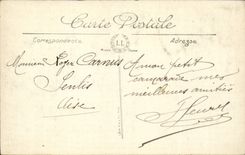 Carte Postale
Correspondance
Adresse
LL
Monsieur Roger Carnus
Senlis
Oise
A mon petit
camarade mes
meilleures amitiés